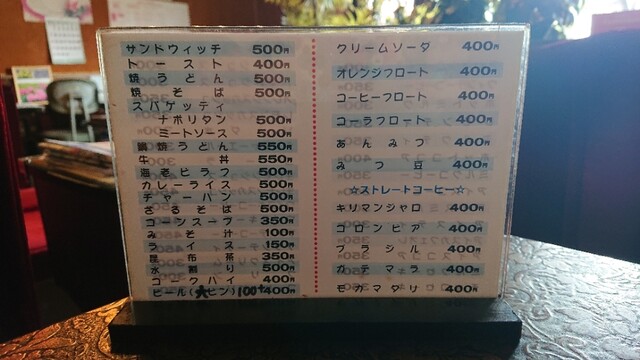 サンドウィッチ 500円
トースト 400円
焼うどん 500円
焼そば 500円
スパゲッティ
ナポリタン 500円
ミートソース 500円
鍋焼うどん 550円
牛丼 550円
海老ピラフ 500円
カレーライス 500円
チャーハン 500円
ざるそば 500円
コーンスープ 350円
みそ汁 100円
ライス 150円
昆布茶 350円
水割り 500円
コークハイ 400円
ビール(大ビン) 100+400円
クリームソーダ 400円
オレンジフロート 400円
コーヒーフロート 400円
コーラフロート 400円
あんみつ 400円
みつ豆 400円
☆ストレートコーヒー☆
キリマンジャロ 400円
コロンビア 400円
ブラジル 400円
ガテマラ 400円
モカマタリ 400円